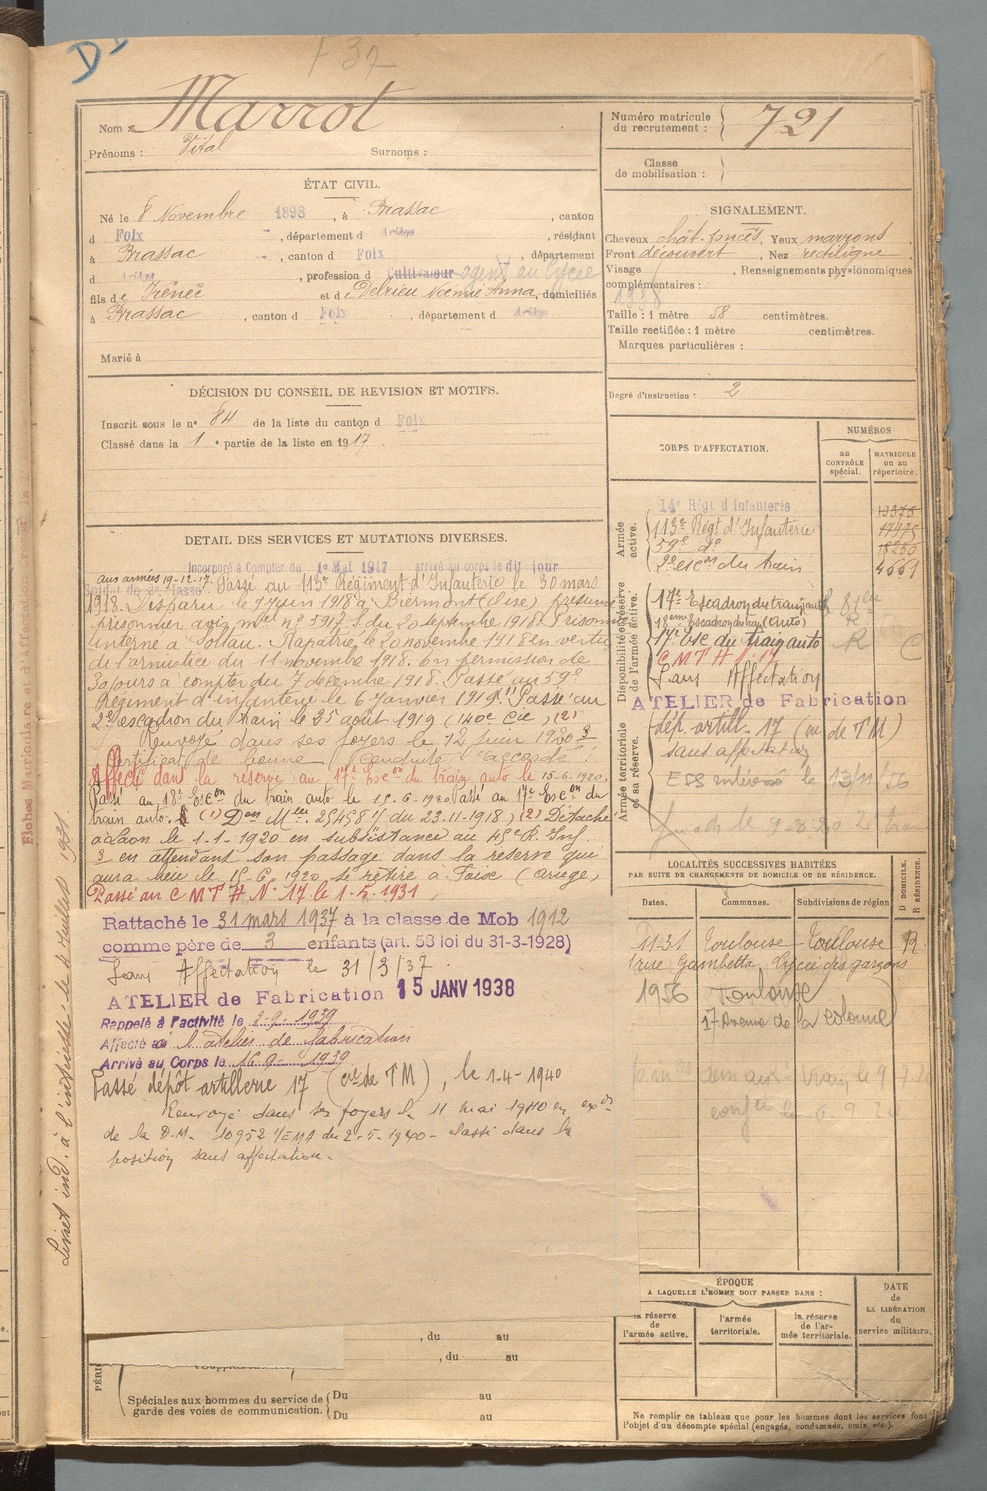 F 32
Nom : Marrot
Prénoms : Vital Surnoms :
Numéro matricule du recrutement : 721
Classe de mobilisation :
ÉTAT CIVIL.
Né le 8 Novembre 1898, à Brassac, canton
d Foix, département d Ariège, résidant
à Brassac, canton d Foix, département
d Ariège, profession d Cultivateur agent au lycée
fils de Irénée et de Delrieu Noémie Anna, domiciliés
à Brassac, canton d Foix, département d Ariège
Marié à
SIGNALEMENT.
Cheveux chât. foncés, Yeux marrons
Front découvert, Nez rectiligne
Visage , Renseignements physionomiques
complémentaires :
1938
Taille : 1 mètre 58 centimètres.
Taille rectifiée : 1 mètre centimètres.
Marques particulières :
Degré d'instruction : 2
DÉCISION DU CONSEIL DE REVISION ET MOTIFS.
Inscrit sous le n° 84 de la liste du canton d Foix
Classé dans la 1e partie de la liste en 1917.
DETAIL DES SERVICES ET MUTATIONS DIVERSES.
Incorporé à Compter du 1er Mai 1917 arrivé au corps le dit jour
aux armées 19-12-17.
Soldat de 2e classe. Passé au 113e Régiment d'Infanterie le 30 mars
1918. Disparu le 9 juin 1918 à Biermont (Oise) présumé
prisonnier avis mel n° 5917. S du 20 septembre 1918. Prisonnier
interné à Soltau. Rapatrié le 20 novembre 1918 en vertu
de l'armistice du 11 novembre 1918. En permission de
30 jours à compter du 7 décembre 1918. Passé au 59e
Régiment d'infanterie le 6 Janvier 1919. (1) Passé au
2e escadron du train le 25 août 1919 (140e Cie) (2)
Renvoyé dans ses foyers le 12 juin 1920 3
Certificat de bonne conduite "accordé".
Affecté dans la réserve au 17e Escon du train auto le 15-6-1920.
Passé au 18e Escon du train auto le 15-6-1920 Passé au 17e Escon du
train auto. (1) Don Mlle 25458 1/ du 23-11-1918, (2) Détaché
à Laon le 1-1-1920 en subsistance au 45e R. Inf
3 en attendant son passage dans la réserve qui
aura lieu le 15-6-1920 se retire à Foix (Ariège)
Passé au C M T H N° 17 le 1-5-1931
Rattaché le 31 mars 1937 à la classe de Mob 1912
comme père de 3 enfants (art. 58 loi du 31-3-1928)
Sans Affectation le 31/3/37
ATELIER de Fabrication 15 JANV 1938
Rappelé à l'activité le 2-9-1939
Affecté à l'atelier de fabrication
Arrivé au Corps le 16-9-1939
Passé dépôt artillerie 17 (cie de T M), le 1-4-1940
Renvoyé dans ses foyers le 11 mai 1940 en exon
de la D.M. 10952 1/EMA du 2-5-1940 - classé dans la
position sans affectation.
CORPS D'AFFECTATION.
NUMÉROS
AU CONTRÔLE spécial.
MATRICULE ou au répertoire.
Armée active.
14e Régt d'Infanterie 13375
113e Régt d'Infanterie 17975
59e do 18230
2e escon du train 4661
Disponibilité et réserve de l'armée active.
17e Escadron du train auto
18ème Escadron du train (Auto) R
17e Esc du train auto R C
C M T H N° 17
Sans Affectation
ATELIER de Fabrication
Armée territoriale et sa réserve.
dép. artill. 17 (cie de T M)
sans affectation
LOCALITÉS SUCCESSIVES HABITÉES
PAR SUITE DE CHANGEMENTS DE DOMICILE OU DE RÉSIDENCE.
Dates. Communes. Subdivisions de région D DOMICILE. R RÉSIDENCE.
11-31 Toulouse Toulouse R
1 rue Gambetta Lycée des garçons
1956 Toulouse
17 Avenue de la colonne
ÉPOQUE
A LAQUELLE L'HOMME DOIT PASSER DANS :
la réserve de l'armée active.
l'armée territoriale.
la réserve de l'armée territoriale.
DATE de LA LIBÉRATION du service militaire.
, du au
, du au
Spéciales aux hommes du service de garde des voies de communication. Du au
Du au
Ne remplir ce tableau que pour les hommes dont les services font
l'objet d'un décompte spécial (engagés, condamnés, omis, etc.).
Livret ind. à l'intéressé le 4 Juillet 1931